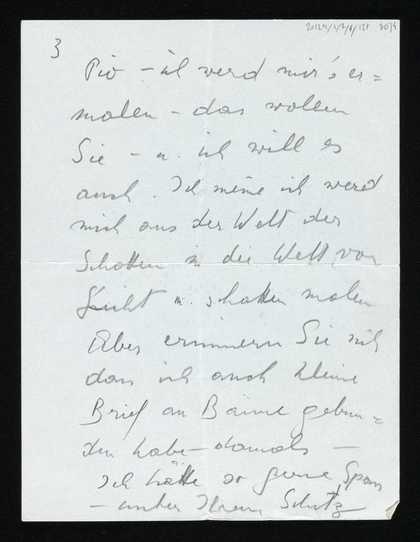 3
Piv – ich werd mir's er=
malen – das wollen
Sie – u. ich will es
auch. Ich meine ich werd
mich aus der Welt der
Schatten in die Welt von
Licht u. schatten malen
Aber erinnern Sie sich
dass ich auch kleine
Brief an Bäume gebun=
den habe – damals –
Ich hätte so gerne Spass
– unter Ihrem Schutz